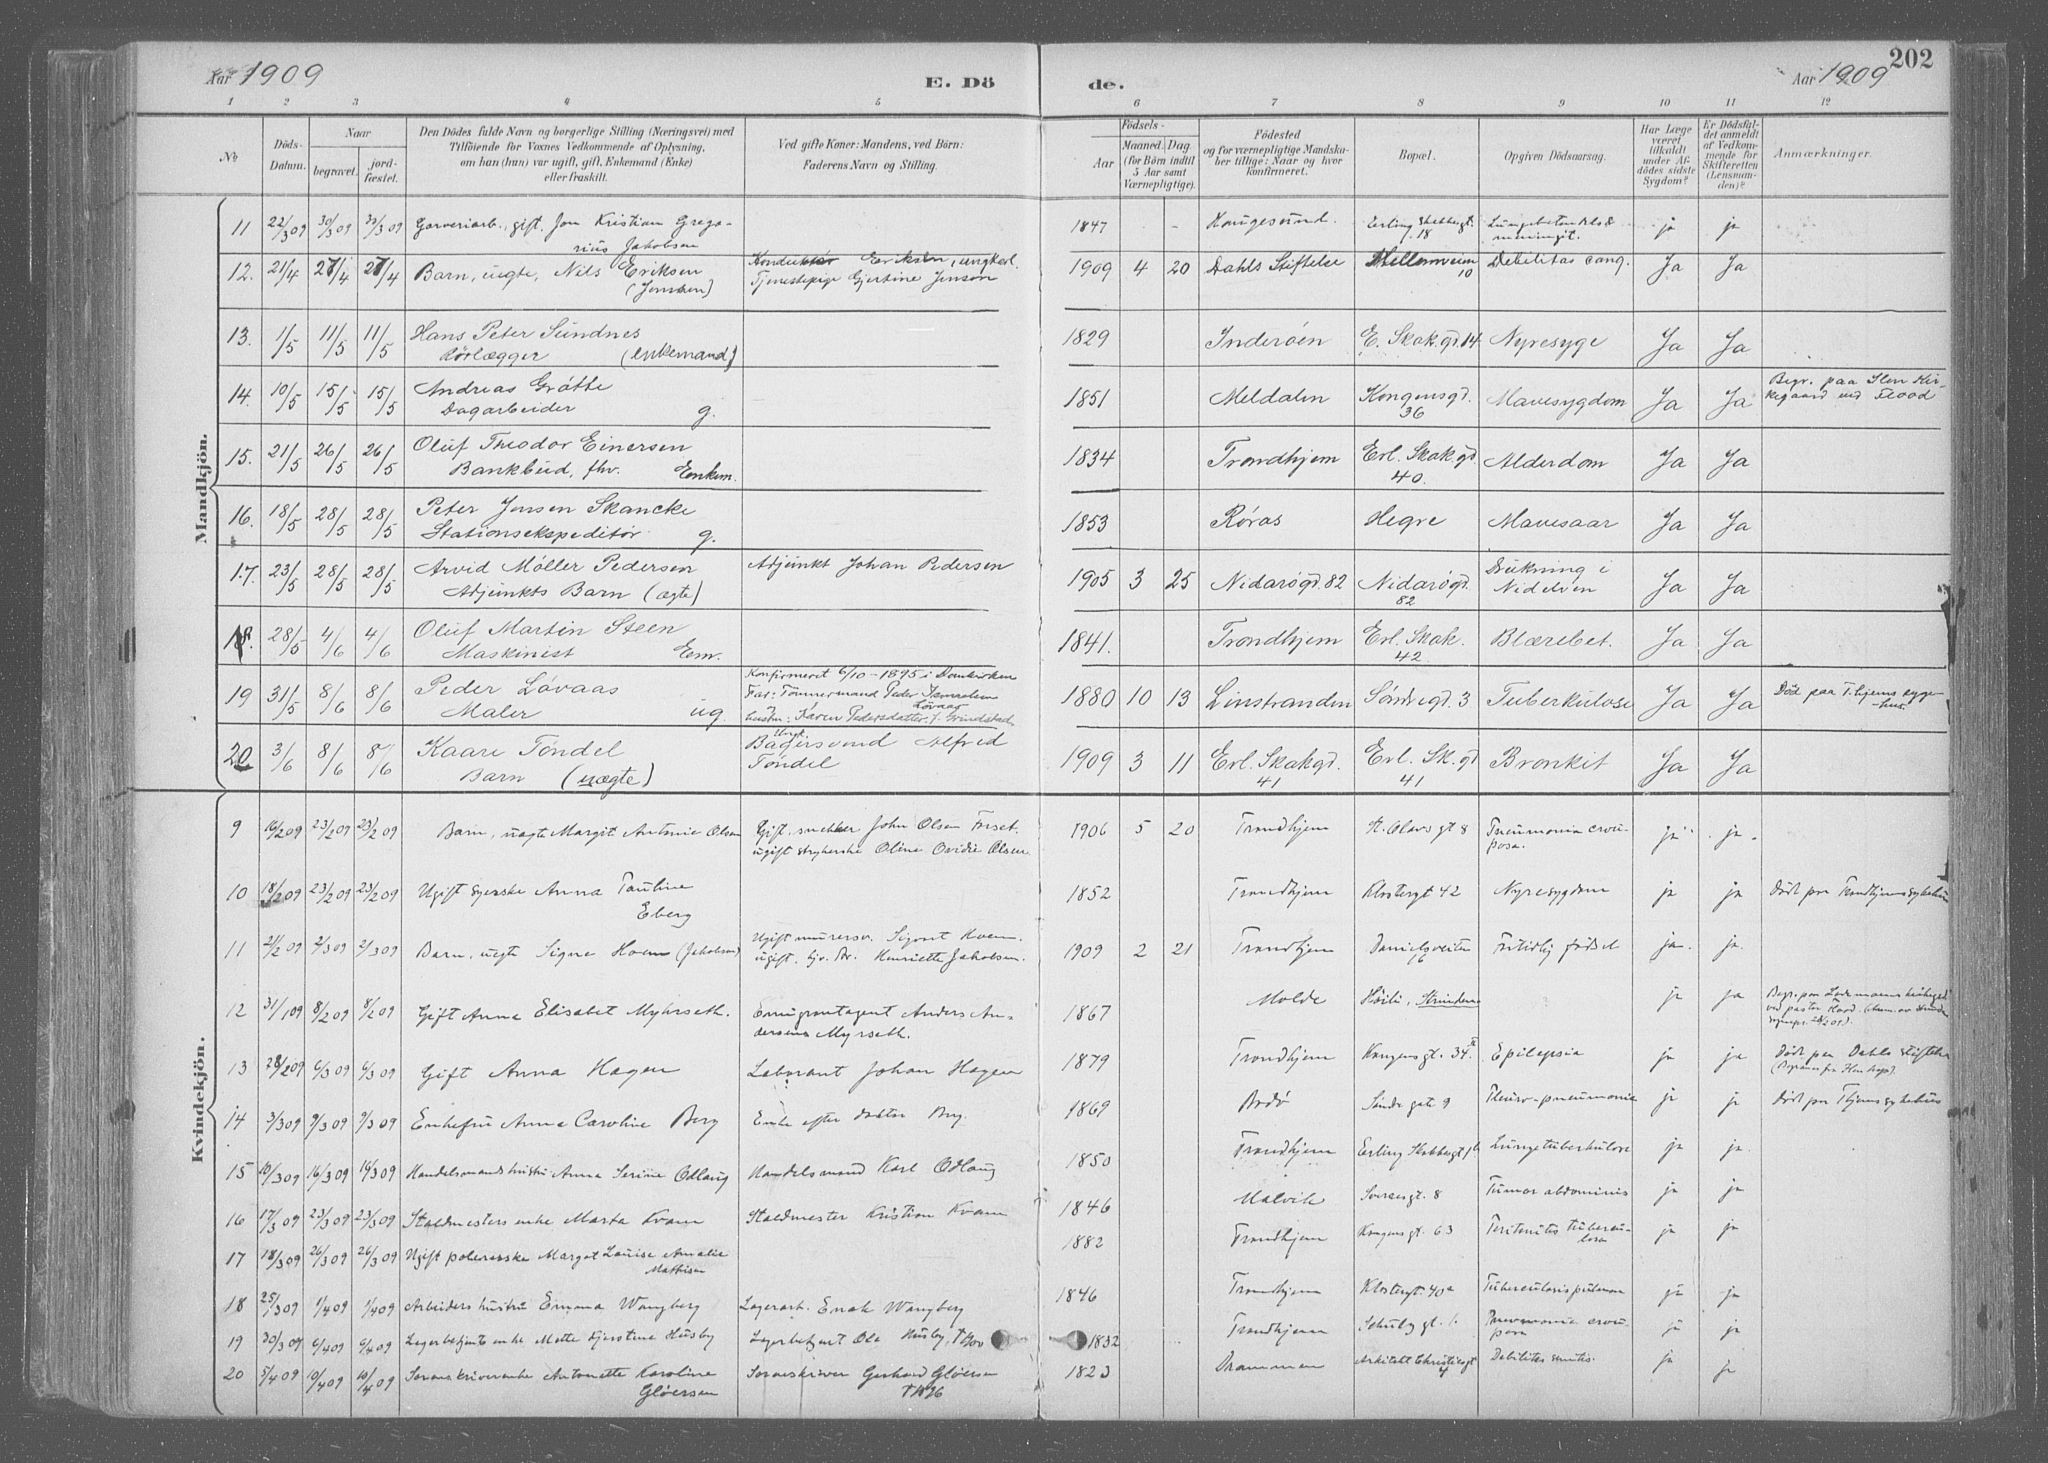 Aar 1909 E. Döde. Aar 1909 202
1 2 3 4 5 6 7 8 9 10 11 12
No
Döds-Datum.
Naar begravet. jordfæstet.
Den Dödes fulde Navn og borgerlige Stilling (Næringsvei) med
Tilföiende for Voxnes Vedkommende af Oplysning,
om han (hun) var ugift, gift, Enkemand (Enke)
eller fraskilt.
Ved gifte Koner: Mandens, ved Börn:
Faderens Navn og Stilling.
Födsels-
Aar Maaned. Dag
(for Börn indtil
5 Aar samt
Værnepligtige).
Födested
og for værnepligtige Mandskaber tillige: Naar og hvor
konfirmeret.
Bopæl.
Opgiven Dödsaarsag.
Har Læge været tilkaldt under Afdödes sidste Sygdom?
Er Dödsfaldet anmeldt af Vedkommende for Skifteretten (Lensmanden)?
Anmærkninger.
Mandkjön.
11 22/3 09 30/3 09 30/3 09 Garveriarb., gift. Jon Kristian Gregorius Jakobsen 1847 - - Haugesund. Erling Skakkesgt. 18 meningit. ja ja
12. 21/4 27/4 27/4 Barn, uegte, Nils Eriksen (Jensen) Eriksen, ungkarl. Tjenestepige Gjertine Jenson 1909 4 20 Dahls Stiftelse Mellemveien 10 Debilitas cong. Ja Ja
13. 1/5 11/5 11/5 Hans Peter Sundnes
Rörlægger (enkemand) 1829 Inderöen E. Skak.gd. 14 Nyresyge Ja Ja
14. 10/5 15/5 15/5 Andreas Grötte
Dagarbeider g. 1851 Meldalen Kongensgd. 36 Mavesygdom Ja Ja Begr. paa Ilen Kirkegaard ved Flood
15. 21/5 26/5 26/5 Oluf Theodor Einersen
Bankbud, fhv. Enkem. 1834 Trondhjem Erl. Skak.gd. 40. Alderdom Ja Ja
16. 18/5 28/5 28/5 Peter Jensen Skancke
Stationsekspeditör g. 1853 Röras Hegre Mavesaar Ja Ja
17. 23/5 28/5 28/5 Arvid Möller Pedersen
Adjunkts Barn (ægte) Adjunkt Johan Pedersen 1905 3 25 Nidarögd. 82 Nidarögd. 82 Drukning i Nidelven Ja Ja
18. 28/5 4/6 4/6 Oluf Martin Steen
Maskinist Em. 1841. Trondhjem Erl. Skak. 42 Blærebet. Ja Ja
19 31/5 8/6 8/6 Peder Lövaas
Maler ug. Konfirmeret 6/10-1895 i Domkirken
Far: Tömmermand Peder Lövaas
hustru: Karen Pedersdatter f. Grindstad 1880 10 13 Linstranden Söndregd. 3 Tuberkulose Ja Ja Död paa T.hjems sygehus.
20 3/6 8/6 8/6 Kaare Töndel
Barn (uægte) Ungk. Bagersvend Alfred Töndel 1909 3 11 Erl. Skakgd. 41 Erl. Sk. gd 41 Bronkit Ja Ja
Kvindekjön.
9 16/2 09 23/2 09 23/2 09 Barn, uægte Margit Antonie Olsen Gift. snekker John Olsen
ugift strykerske Oline Ovidie Olsen. 1906 5 20 Trondhjem St. Olavs gt 8 Pneumonia crouposa. ja ja
10 18/2 09 23/2 09 23/2 09 Ugift syerske Anna Pauline
Eberg 1852 Trondhjem Klostergt 42 Nyresygdom ja ja Död paa Trondhjems sykehus
11 21/2 09 2/3 09 2/3 09 Barn, uegte Signe Hoem (Jakobsen) Ugift murersv. Sigvart Hoem.
ugift. Henriette Jakobsen. 1909 2 21 Trondhjem Danielsveiten 16 Fritidlig födsel ja. ja.
12 31/1 09 8/2 09 8/2 09 Gift Anna Elisabet Myhrseth. Emigrantagent Anders Andersens Myrseth. 1867 Molde Höili, Strinden ja ja Begr. paa Lademoens kirkegd
13 28/2 09 6/3 09 6/3 09 Gift Anna Hagen Laborant Johan Hagen 1879 Trondhjem Kongensgt. 34 Epilepsia ja ja Död paa Dahls stiftelse
14 3/3 09 9/3 09 9/3 09 Enkefru Anna Caroline Berg Enke efter doktor Berg 1869 Bodö Söndre gate 9 Pleuro-pneumonia ja ja Död paa T.hjems sykehus
15 10/3 09 16/3 09 16/3 09 Handelsmandshustru Anna Serine Odlaug Handelsmand Karl Odlaug 1850 Trondhjem Erling Skakkesgt Lungetuberkulose ja ja
16 17/3 09 23/3 09 23/3 09 Staldmesters enke Marta Kvam Staldmester Kristian Kvam 1846 Malvik gt. 8 Tumor abdominis ja ja
17 18/3 09 26/3 09 26/3 09 Ugift polererske Margot Louise Amalie
Mathisen 1882 Trondhjem Kongensgt. 63 Peritonitis tuberculosa ja ja
18 25/3 09 1/4 09 1/4 09 Arbeiders hustru Emma Wangberg Lagerarb. Enok Wangberg 1846 Trondhjem Klostergt. 40a Tuberculosis pulmon ja ja
19 30/3 09 6/4 09 6/4 09 Lagerbetjents enke Mette Kjerstine Husby Lagerbetjent Ole Husby 1832 Trondhjem Schultzgt. 1. Pneumonia crouposa ja ja
20 5/4 09 10/4 09 10/4 09 Sorenskriverenke Antonette Karoline
Glöersen Sorenskriver Gerhard Glöersen
† 1896 1823 Drammen Arkitekt Christiesgt Debilitas senilis. ja ja